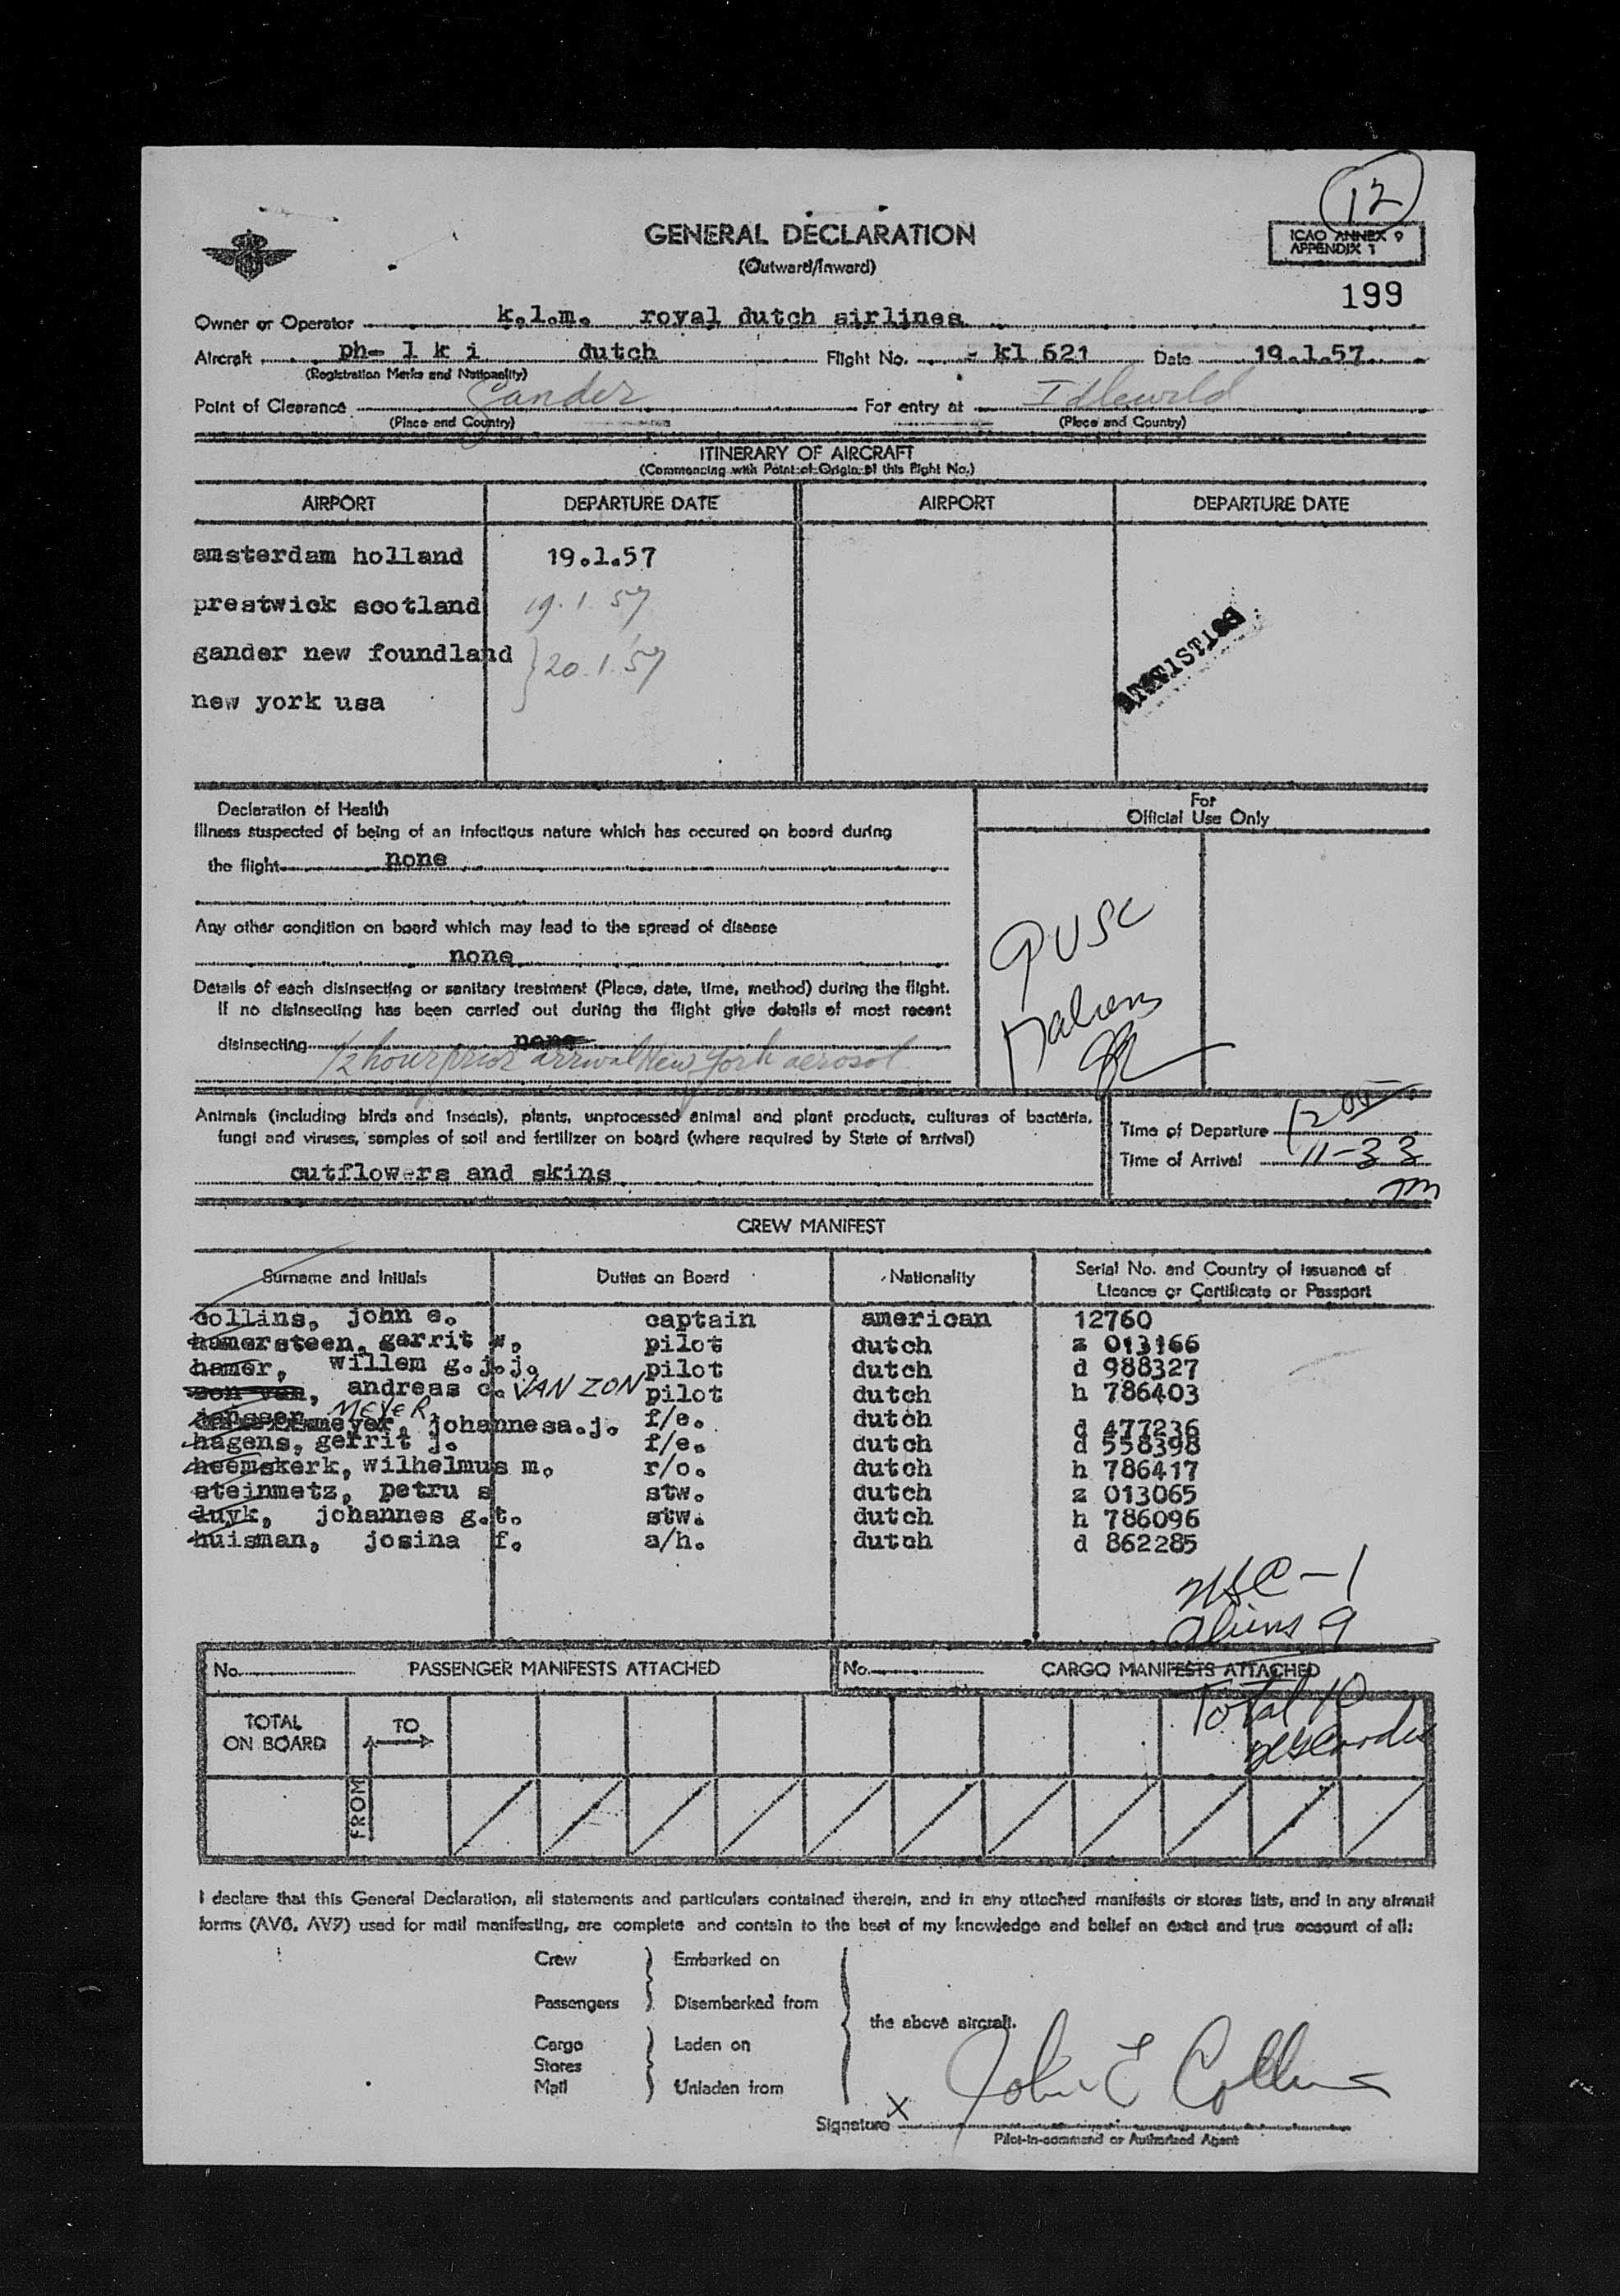 12
GENERAL DECLARATION
(Outward/Inward)
ICAO ANNEX 9
APPENDIX 1
199
Owner or Operator k.l.m. royal dutch airlines
Aircraft ph- l k i dutch Flight No. - kl 621 Date 19.1.57.
(Registration Marks and Nationality)
Point of Clearance Gander For entry at Idlewild
(Place and Country) (Place and Country)
ITINERARY OF AIRCRAFT
(Commencing with Point of Origin of this flight No.)
AIRPORT DEPARTURE DATE AIRPORT DEPARTURE DATE
amsterdam holland 19.1.57
prestwick scotland 19.1.57
gander new foundland 20.1.57
new york usa
STATISTICS
Declaration of Health
Illness suspected of being of an infectious nature which has occured on board during
the flight none
Any other condition on board which may lead to the spread of disease
none
Details of each disinsecting or sanitary treatment (Place, date, time, method) during the flight.
If no disinsecting has been carried out during the flight give details of most recent
disinsecting none
1/2 hour prior arrival New York aerosol
For
Official Use Only
Animals (including birds and insects), plants, unprocessed animal and plant products, cultures of bacteria,
fungi and viruses, samples of soil and fertilizer on board (where required by State of arrival)
cutflowers and skins
Time of Departure
Time of Arrival 11-33
CREW MANIFEST
Surname and Initials Duties on Board Nationality Serial No. and Country of issuance of
Licence or Certificate or Passport
collins, john e. captain american 12760
hamersteen, gerrit w. pilot dutch z 013166
hamer, willem g.j.j. pilot dutch d 988327
zon van, andreas c. VAN ZON pilot dutch h 786403
janssen MEYER, johannesa.j. f/e. dutch d 477236
hagens, gerrit j. f/e. dutch d 558398
heemskerk, wilhelmus m. r/o. dutch h 786417
steinmetz, petru s stw. dutch z 013065
luyk, johannes g.t. stw. dutch h 786096
huisman, josina f. a/h. dutch d 862285
USC-1
aliens 9
No. PASSENGER MANIFESTS ATTACHED No. CARGO MANIFESTS ATTACHED
Total 10
TOTAL
ON BOARD
TO
FROM
I declare that this General Declaration, all statements and particulars contained therein, and in any attached manifests or stores lists, and in any airmail
forms (AV6, AV7) used for mail manifesting, are complete and contain to the best of my knowledge and belief an exact and true account of all:
Crew Embarked on
Passengers Disembarked from
the above aircraft.
Cargo Laden on
Stores
Mail Unladen from
Signature X John E Collins
Pilot-in-command or Authorized Agent